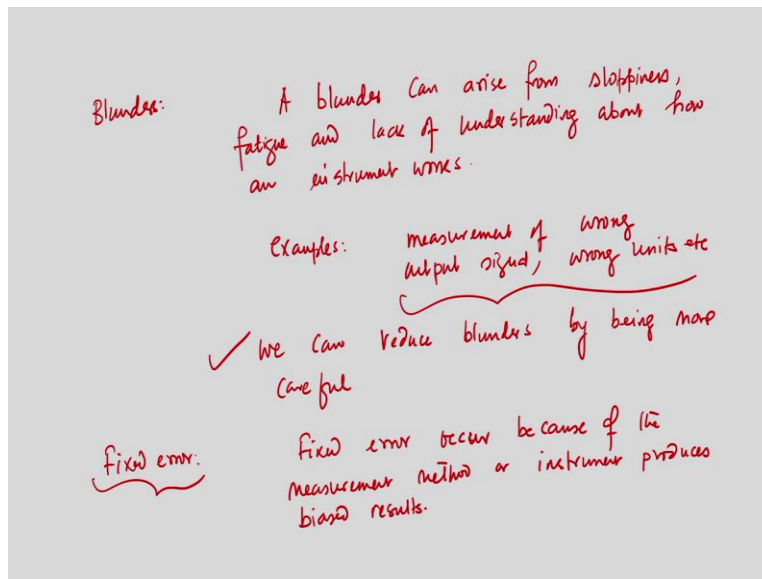 Blunder: A blunder can arise from sloppiness,
fatigue and lack of understanding about how
an instrument works.
Examples: measurement of wrong
output signal, wrong units etc
✓ We can reduce blunders by being more
careful
Fixed error: Fixed error occur because of the
measurement method or instrument produces
biased results.